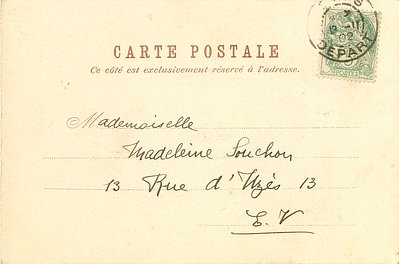 CARTE POSTALE
Ce côté est exclusivement réservé à l'adresse.
DÉPART
Mademoiselle
Madeleine Souchon
13 Rue d'Uzès 13
E. V